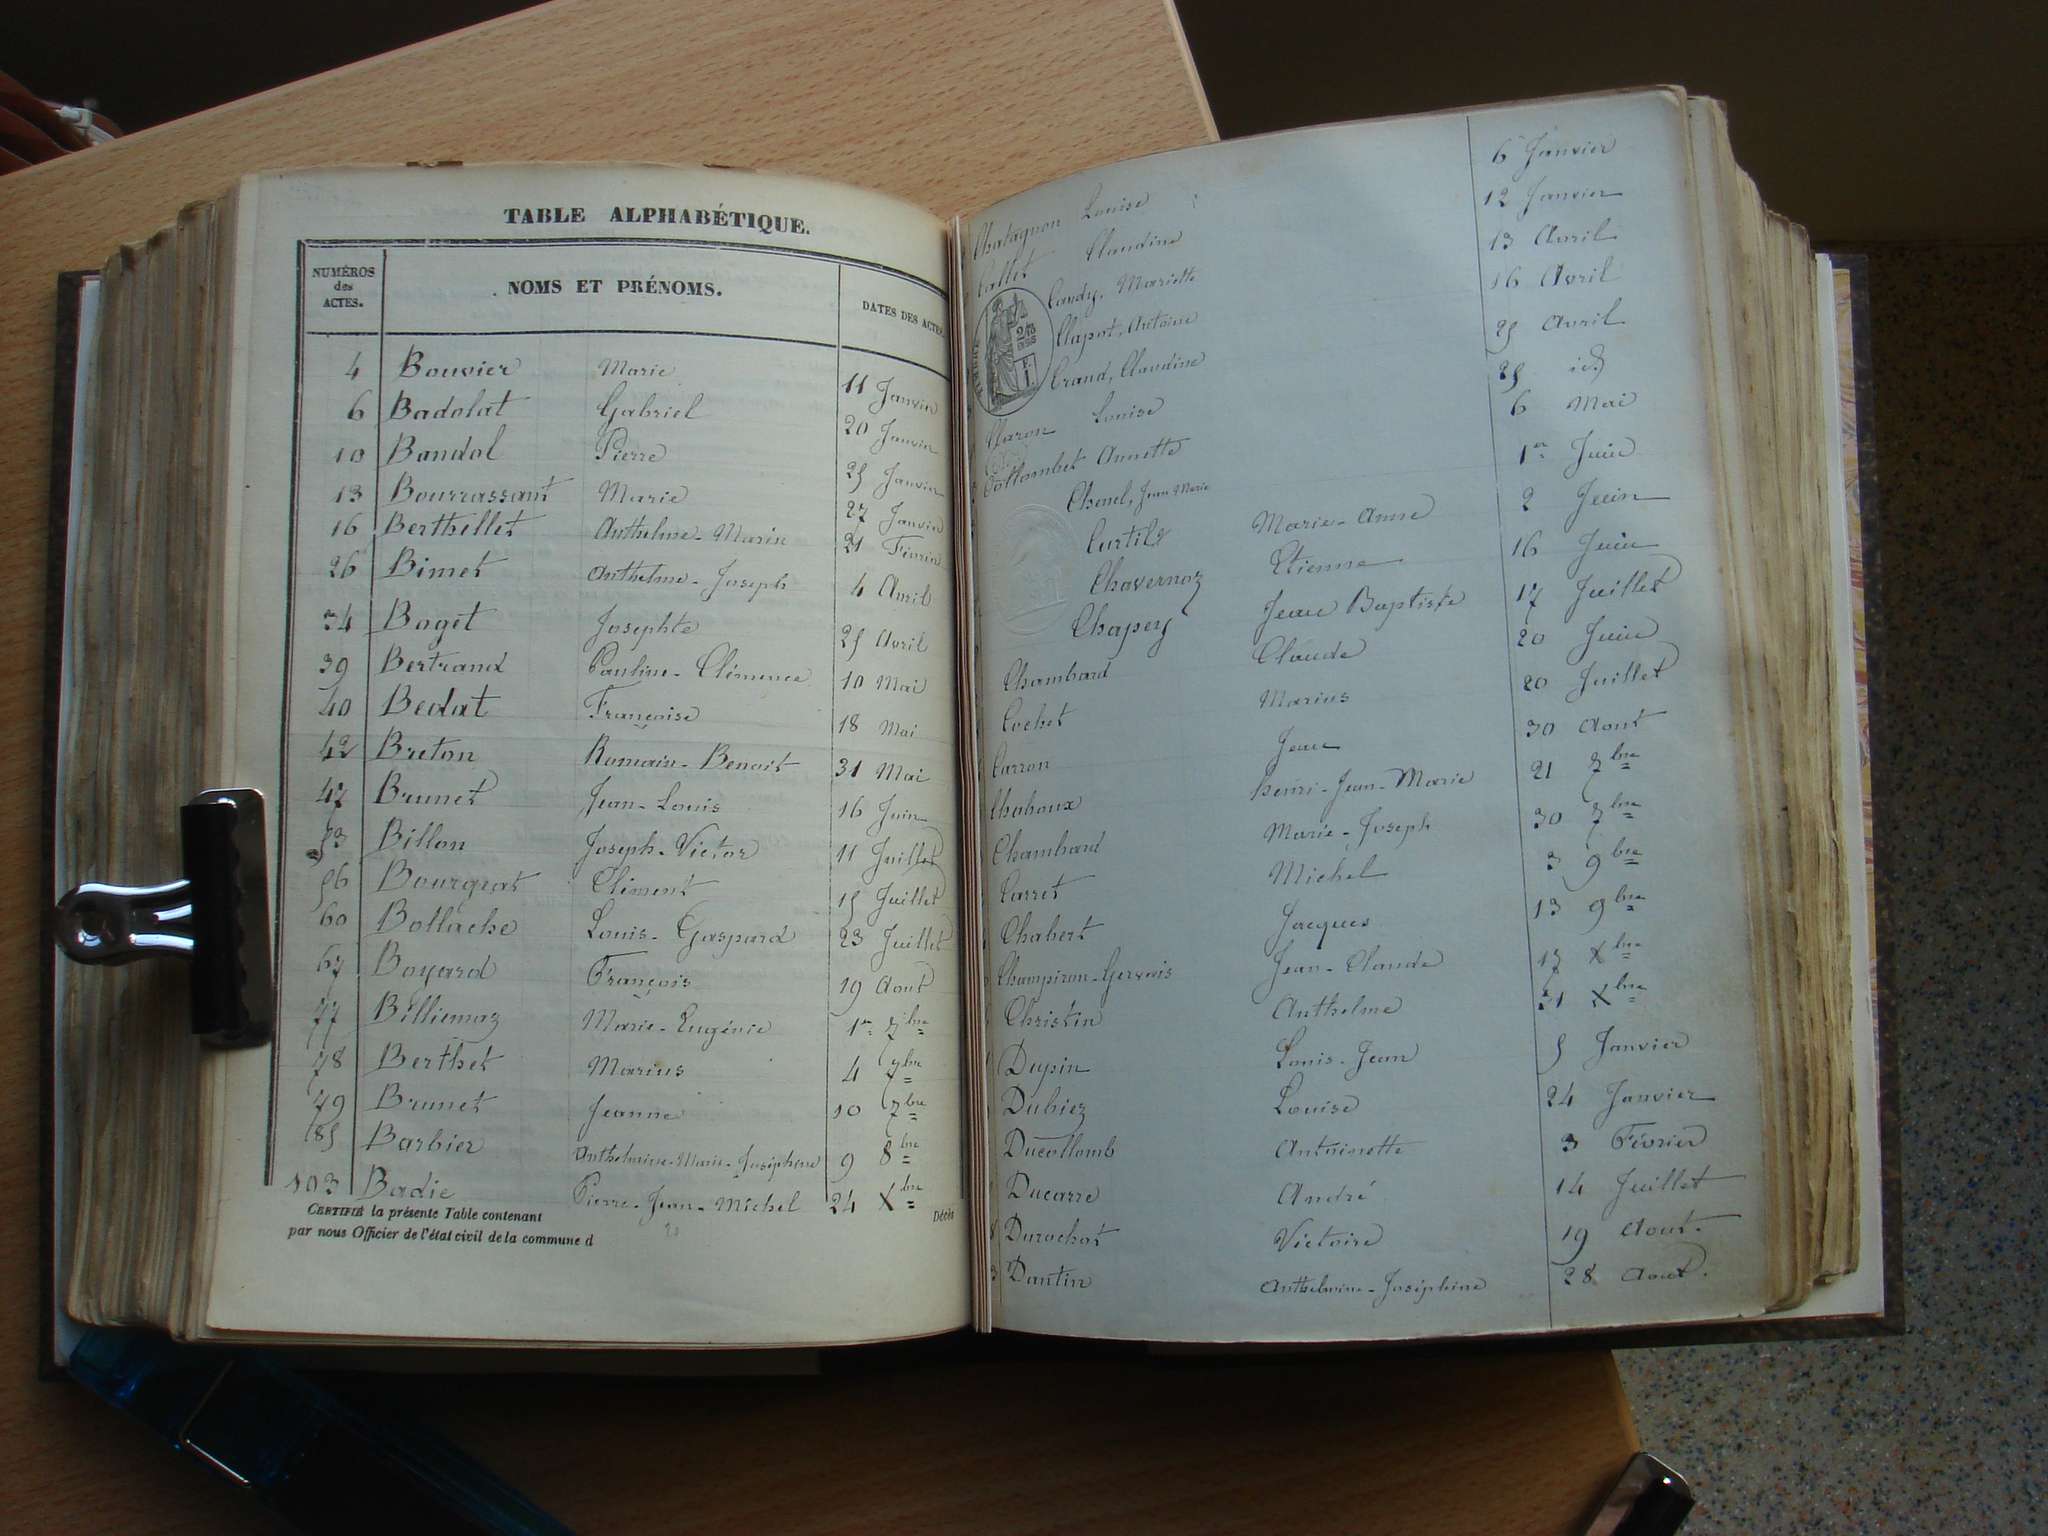 TABLE ALPHABÉTIQUE.
NUMÉROS des ACTES. NOMS ET PRÉNOMS. DATES DES ACTES
4 Bouvier Marie 11 Janvier
6 Badolat Gabriel 20 Janvier
10 Bandol Pierre 25 Janvier
13 Bourrassant Marie 27 Janvier
16 Berthellet Anthelme-Marie 21 Février
26 Bimet Anthelme-Joseph 4 Avril
34 Boget Josephte 25 Avril
39 Bertrand Pauline-Clémence 10 Mai
40 Bedat Françoise 18 Mai
42 Breton Romain-Benoit 31 Mai
47 Brunet Jean-Louis 16 Juin
53 Billon Joseph-Victor 11 Juillet
56 Bourgeat Clément 15 Juillet
60 Bollache Louis-Gaspard 23 Juillet
67 Boyard François 19 Aout
77 Billiemaz Marie-Eugénie 1er 7bre
78 Berthet Marius 4 7bre
79 Brunet Jeanne 10 7bre
85 Barbier Anthelmine-Marie-Joséphine 9 8bre
103 Badie Pierre-Jean-Michel 24 Xbre
CERTIFIÉ la présente Table contenant Décès
par nous Officier de l'état civil de la commune d
20
Chatagnon Louise 6 Janvier
Callet Claudine 12 Janvier
Caudy, Mariette 13 Avril
Clapot, Antoine 16 Avril
Craud, Claudine 25 Avril
Claron Louise 25 id
Collombet Annette 6 Mai
Chenel, Jean Marie 1er Juin
Curtil Marie-Anne 2 Juin
Chavernoz Etienne 16 Juin
Chapey Jean Baptiste 17 Juillet
Chambard Claude 20 Juin
Cochet Marius 20 Juillet
Carron Jean 30 Aout
Chahoux henri-Jean-Marie 21 7bre
Chambard Marie-Joseph 30 7bre
Carret Michel 3 9bre
Chabert Jacques 13 9bre
Champiron-Gervais Jean-Claude 17 Xbre
Christin Anthelme 21 Xbre
Dupin Louis-Jean 5 Janvier
Dubiez Louise 24 Janvier
Ducollomb Antoinette 3 Février
Ducarre André 14 Juillet
Durochat Victoire 19 Aout.
Dantin Anthelmine-Joséphine 28 Aout.